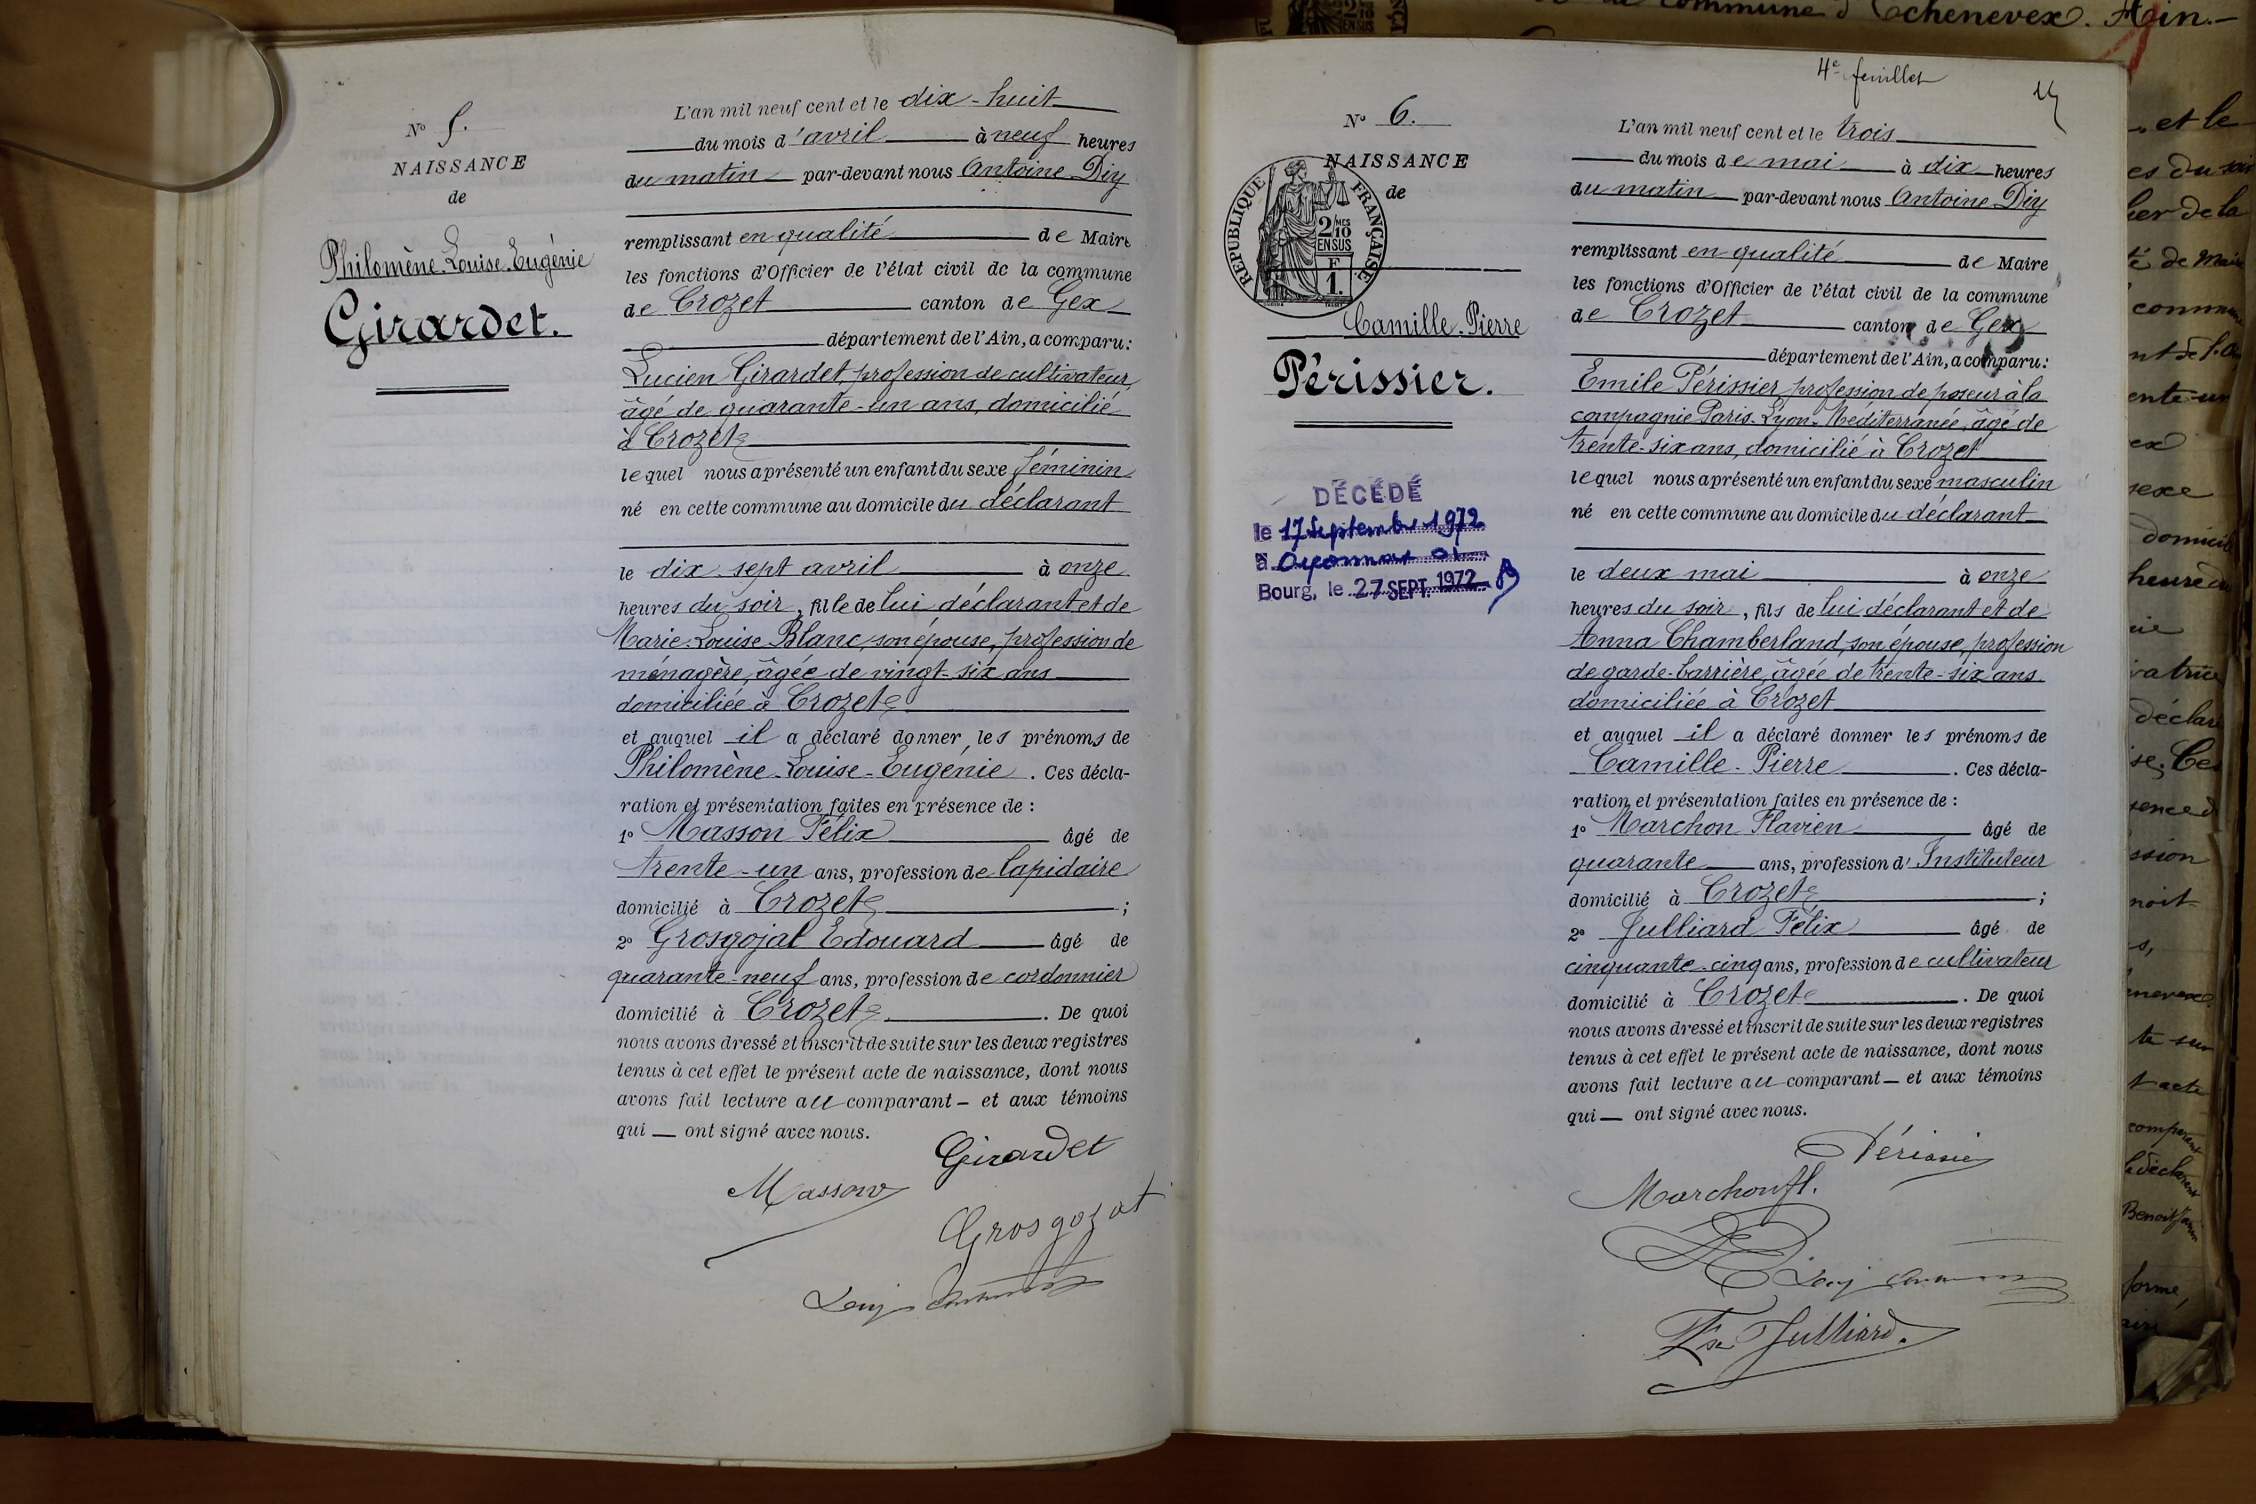 N° 5.
NAISSANCE
de
Philomène-Louise-Eugénie
Girardet.
L'an mil neuf cent et le dix-huit
du mois d'avril à neuf heures
du matin par-devant nous Antoine Diy
remplissant en qualité de Maire
les fonctions d'Officier de l'état civil de la commune
de Crozet canton de Gex
département de l'Ain, a comparu:
Lucien Girardet, profession de cultivateur,
âgé de quarante-un ans, domicilié
à Crozet
lequel nous a présenté un enfant du sexe féminin
né en cette commune au domicile du déclarant
le dix-sept avril à onze
heures du soir, fille de lui déclarant et de
Marie-Louise Blanc, son épouse, profession de
ménagère, âgée de vingt-six ans
domiciliée à Crozet
et auquel il a déclaré donner les prénoms de
Philomène-Louise-Eugénie. Ces décla-
ration et présentation faites en présence de :
1° Masson Félix âgé de
trente-un ans, profession de lapidaire
domicilié à Crozet ;
2° Grosgojat Edouard âgé de
quarante-neuf ans, profession de cordonnier
domicilié à Crozet. De quoi
nous avons dressé et inscrit de suite sur les deux registres
tenus à cet effet le présent acte de naissance, dont nous
avons fait lecture au comparant — et aux témoins
qui — ont signé avec nous.
Girardet
Masson
Grosgojat
4e feuillet
N° 6.
NAISSANCE
de
REPUBLIQUE FRANÇAISE
2/10 MES
EN SUS
F
1.
Camille-Pierre
Périssier.
DÉCÉDÉ
le 17 Septembre 1972
à Oyonnax 01
Bourg, le 27 SEPT. 1972
L'an mil neuf cent et le trois
du mois de mai à dix heures
du matin par-devant nous Antoine Diy
remplissant en qualité de Maire
les fonctions d'Officier de l'état civil de la commune
de Crozet canton de Gex
département de l'Ain, a comparu:
Emile Périssier, profession de poseur à la
compagnie Paris-Lyon-Méditerranée, âgé de
trente-six ans, domicilié à Crozet
lequel nous a présenté un enfant du sexe masculin
né en cette commune au domicile du déclarant
le deux mai à onze
heures du soir, fils de lui déclarant et de
Anna Chamberland, son épouse, profession
de garde-barrière, âgée de trente-six ans
domiciliée à Crozet
et auquel il a déclaré donner les prénoms de
Camille-Pierre. Ces décla-
ration et présentation faites en présence de :
1° Marchon Flavien âgé de
quarante ans, profession d'Instituteur
domicilié à Crozet ;
2° Julliard Félix âgé de
cinquante-cinq ans, profession de cultivateur
domicilié à Crozet. De quoi
nous avons dressé et inscrit de suite sur les deux registres
tenus à cet effet le présent acte de naissance, dont nous
avons fait lecture au comparant — et aux témoins
qui — ont signé avec nous.
Périssier
Marchon fl.
Julliard.
commune d'Echenevex. Ain.-
et le